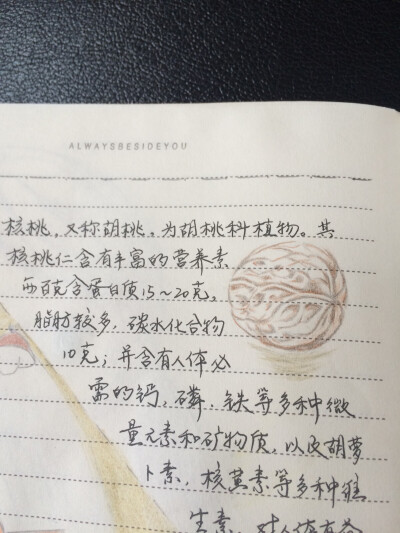 ALWAYSBESIDEYOU
核桃，又称胡桃，为胡桃科植物。其
核桃仁含有丰富的营养素
每百克含蛋白质15～20克，
脂肪较多，碳水化合物
10克；并含有人体必
需的钙，磷，铁等多种微
量元素和矿物质，以及胡萝
卜素，核黄素等多种维
生素。对人体有益